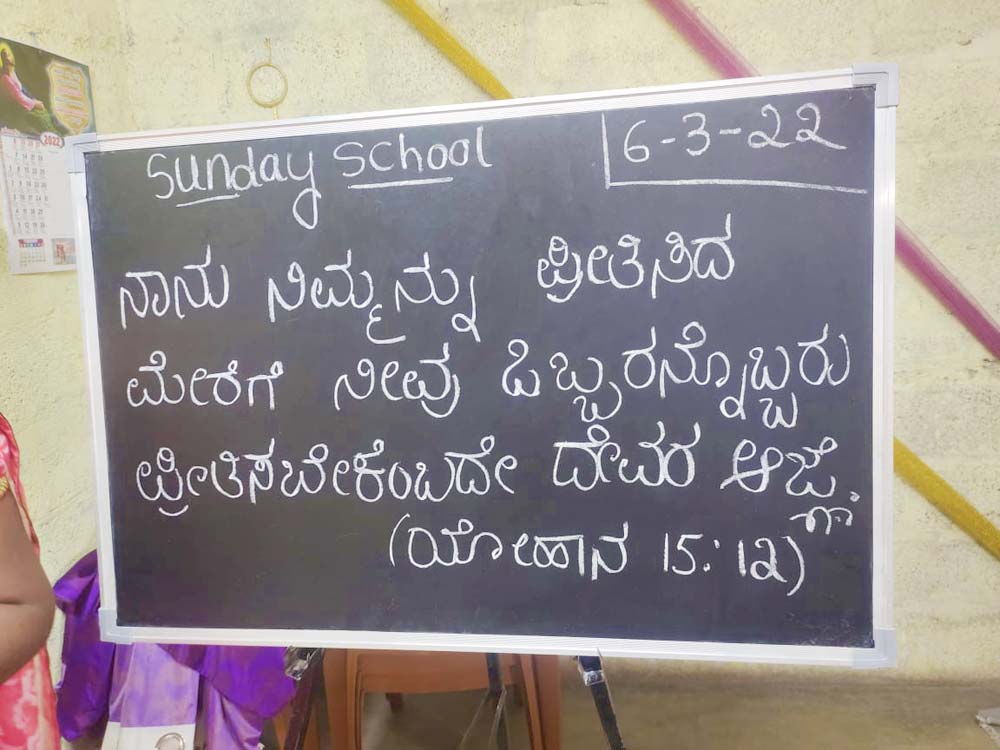 Sunday School
6-3-22
ನಾನು ನಿಮ್ಮನ್ನು ಪ್ರೀತಿಸಿದ
ಮೇರೆಗೆ ನೀವು ಒಬ್ಬರನ್ನೊಬ್ಬರು
ಪ್ರೀತಿಸಬೇಕೆಂಬದೇ ದೇವರ ಆಜ್ಞೆ.
(ಯೋಹಾನ 15:12)
2022